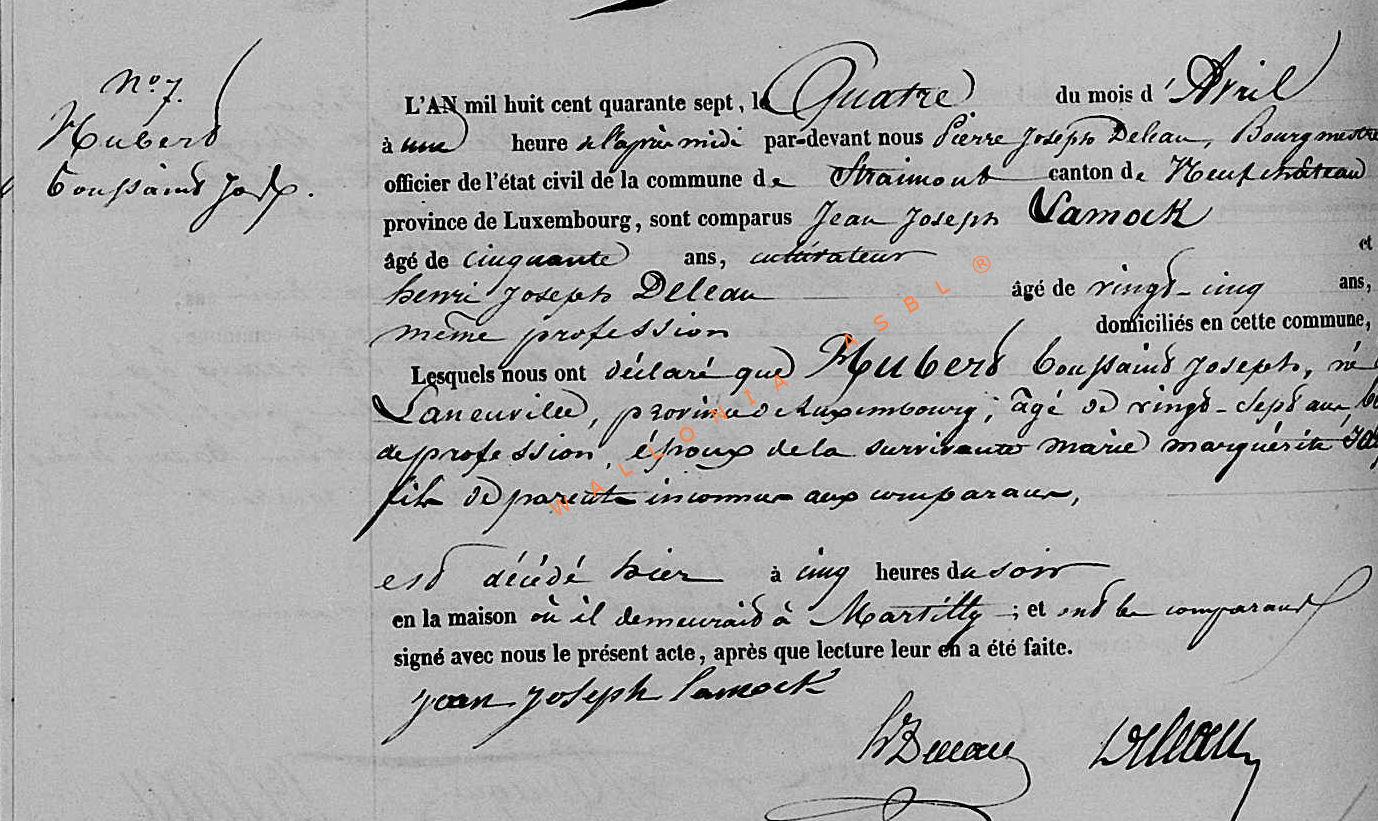 No 7.
Hubert
Toussaint Jos.
L'AN mil huit cent quarante sept, le Quatre du mois d' Avril
à une heure de l'après midi par-devant nous Pierre Joseph Deleau, Bourgmestre
officier de l'état civil de la commune de Straimont canton de Neufchâteau
province de Luxembourg, sont comparus Jean Joseph Lamock
âgé de cinquante ans, cultivateur et
henri Joseph Deleau âgé de vingt-cinq ans,
même profession domiciliés en cette commune,
Lesquels nous ont déclaré que Hubert Toussaint Joseph, né
Laneuville, province de Luxembourg, âgé de vingt-sept ans
de profession, époux de la survivante marie marguérite
fils de parents inconnus aux comparans,
est décédé hier à cinq heures du soir
en la maison où il demeurait à Martilly ; et ont les comparants
signé avec nous le présent acte, après que lecture leur en a été faite.
Jean Joseph Lamock
h Deleau Deleau
WALLONIA ASBL ®